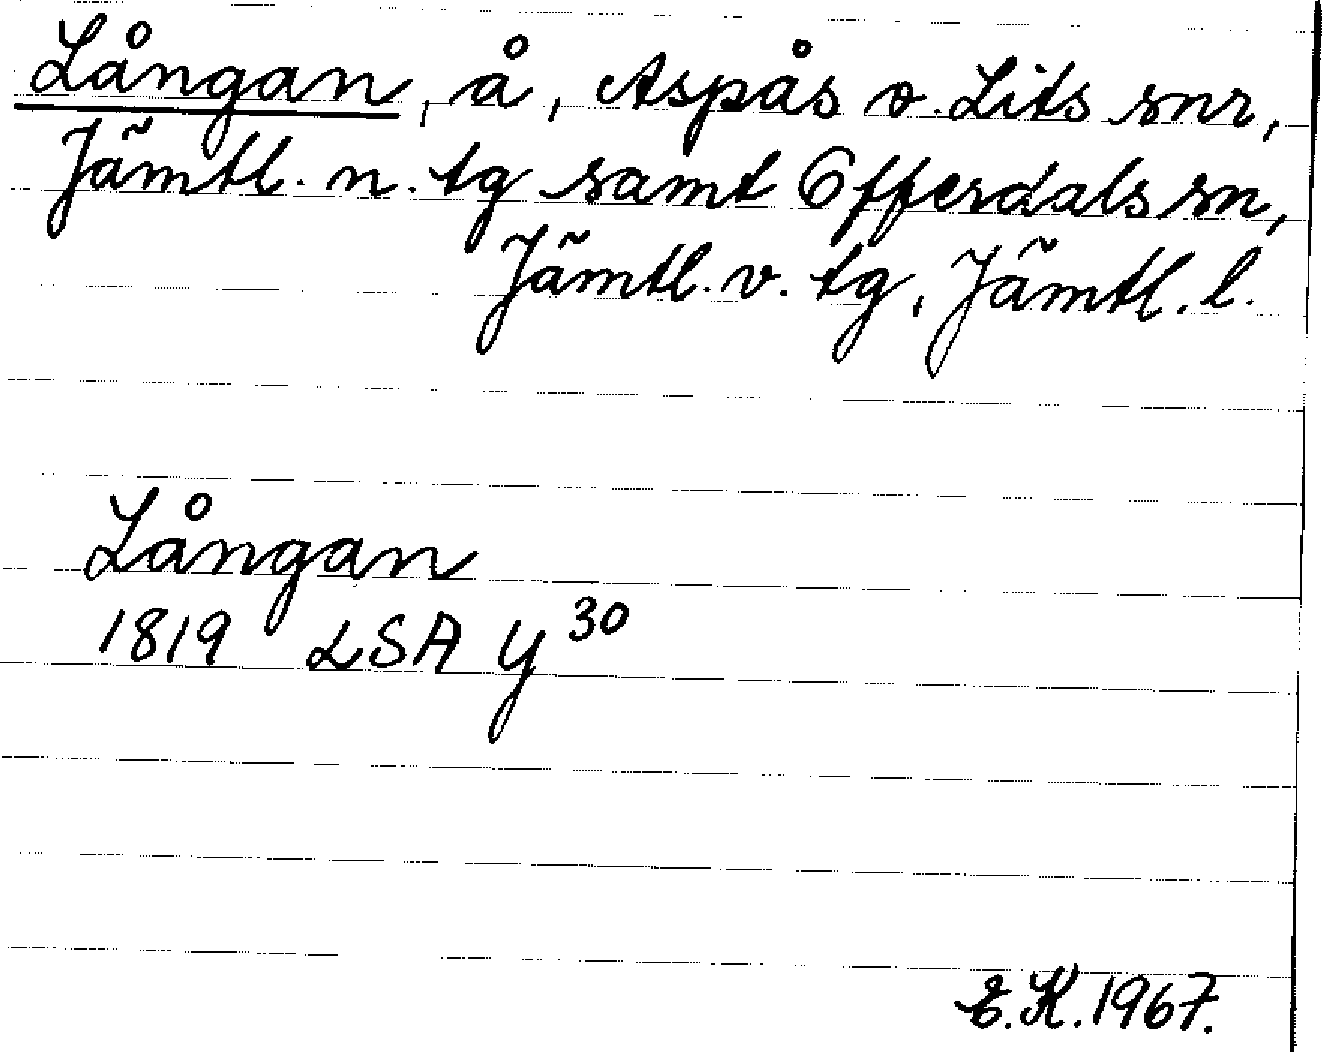 Långan, å, Aspås o. Lits snr,
Jämtl. n. tg samt Offerdals sn,
Jämtl. v. tg, Jämtl. l.
Långan
1819 LSA Y 30
E.K. 1967.